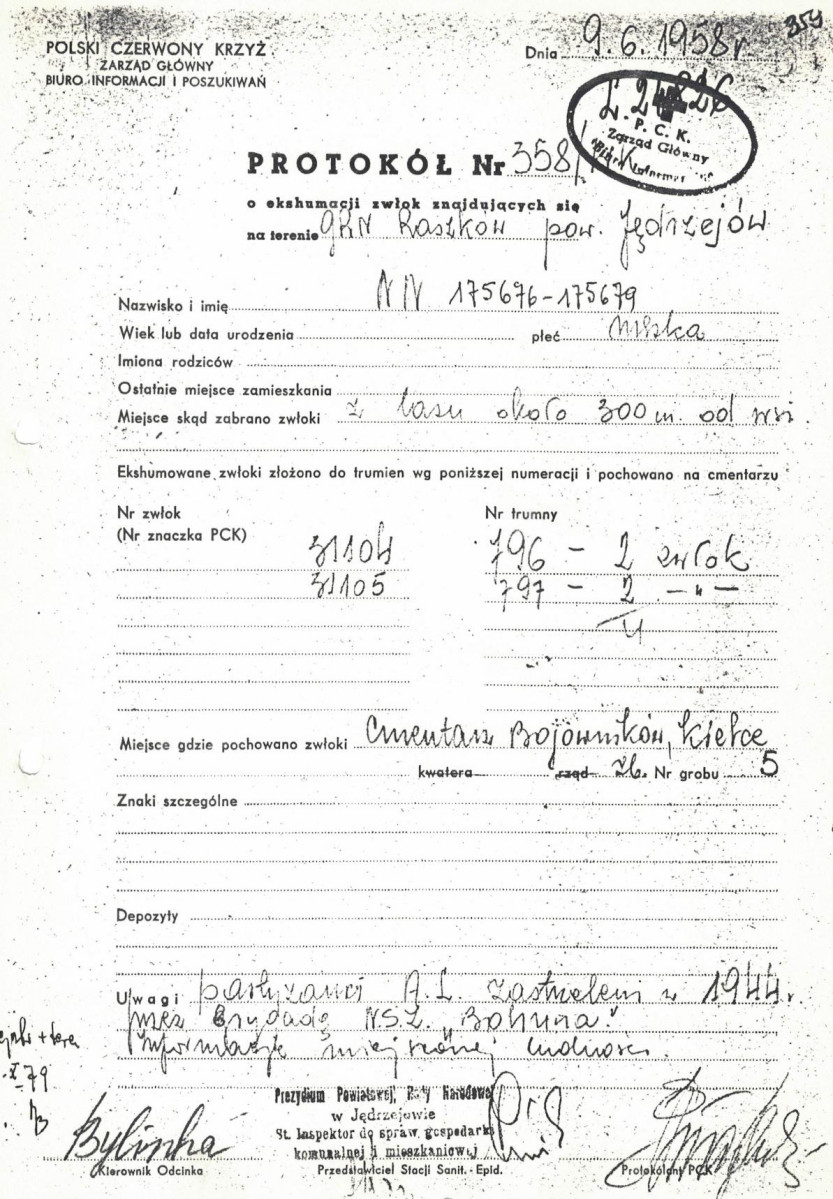 354
POLSKI CZERWONY KRZYŻ
ZARZĄD GŁÓWNY
BIURO INFORMACJI I POSZUKIWAŃ
Dnia 9.6.1958 r
P. C. K.
Zarząd Główny
PROTOKÓŁ Nr 358/
o ekshumacji zwłok znajdujących się
na terenie GRN Raszków pow. Jędrzejów
Nazwisko i imię NN 175676-175679
Wiek lub data urodzenia płeć męska
Imiona rodziców
Ostatnie miejsce zamieszkania
Miejsce skąd zabrano zwłoki z lasu około 300 m. od wsi
Ekshumowane zwłoki złożono do trumien wg poniższej numeracji i pochowano na cmentarzu
Nr zwłok Nr trumny
(Nr znaczka PCK)
31104 796 - 2 zwłok
31105 797 - 2 -"-
4
Miejsce gdzie pochowano zwłoki Cmentarz Bojowników, Kielce
kwatera rząd zb. Nr grobu 5
Znaki szczególne
Depozyty
Uwagi partyzanci A.L. zastrzeleni w 1944 r.
przez Brygadę N.S.Z. "Bohuna."
Informacje miejscowej ludności.
79
Prezydium Powiatowej Rady Narodowej
w Jędrzejowie
St. Inspektor do spraw gospodarki
komunalnej i mieszkaniowej
Bylinka
Kierownik Odcinka Przedstawiciel Stacji Sanit.-Epid. Protokólant PCK